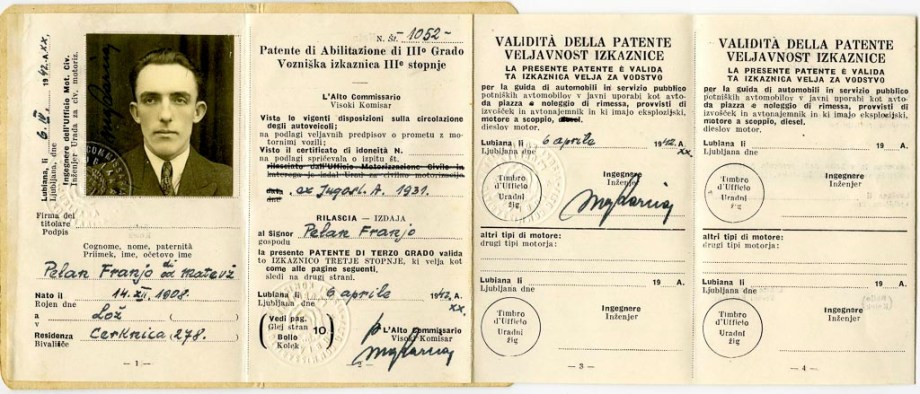 Lubiana, li 6. IV. 1942. A. XX.
Ljubljana, dne
Ingegnere dell'Ufficio Mot. Civ.
Inženjer Urada za civ. motoriz.
Firma del
titolare
Podpis
Cognome, nome, paternità
Priimek, ime, očetovo ime
Pelan Franjo di
od Matevž
Nato il
Rojen dne 14. XII. 1908.
a
v Lož ( )
Residenza
Bivališče Cerknica 278.
— 1 —
N. Št. -1052-
Patente di Abilitazione di IIIº Grado
Vozniška izkaznica IIIe stopnje
L'Alto Commissario
Visoki Komisar
Viste le vigenti disposizioni sulla circolazione
degli autoveicoli;
na podlagi veljavnih predpisov o prometu z mo-
tornimi vozili;
Visto il certificato di idoneità N.
na podlagi spričevala o izpitu št.
rilasciato dall'Ufficio Motorizzazione Civile in
data ex Jugosl. A. 1931.
RILASCIA — IZDAJA
al Signor
gospodu Pelan Franjo
la presente PATENTE DI TERZO GRADO valida
to IZKAZNICO TRETJE STOPNJE, ki velja kot
come alle pagine seguenti,
sledi na drugi strani.
Lubiana li
Ljubljana dne 6 aprile 1942. A.
XX.
Vedi pag.
Glej stran 10
Bollo
Kolek
p L'Alto Commissario
Visoki Komisar
VALIDITÀ DELLA PATENTE
VELJAVNOST IZKAZNICE
LA PRESENTE PATENTE È VALIDA
TA IZKAZNICA VELJA ZA VODSTVO
per la guida di automobili in servizio pubblico
potniških avtomobilov v javni uporabi kot avto-
da piazza e noleggio di rimessa, provvisti di
izvošček in avtonajemnik in ki imajo eksplozijski,
motore a scoppio, diesel.
dieslov motor.
Lubiana li 6 aprile 1942. A.
Ljubljana dne XX.
Timbro
d'Ufficio
Uradni
žig
Ingegnere
Inženjer
altri tipi di motore:
drugi tipi motorja:
Lubiana li 19 A.
Ljubljana dne
Timbro
d'Ufficio
Uradni
žig
Ingegnere
Inženjer
— 3 —
VALIDITÀ DELLA PATENTE
VELJAVNOST IZKAZNICE
LA PRESENTE PATENTE È VALIDA
TA IZKAZNICA VELJA ZA VODSTVO
per la guida di automobili in servizio pubblico
potniških avtomobilov v javni uporabi kot avto-
da piazza e noleggio di rimessa, provvisti di
izvošček in avtonajemnik in ki imajo eksplozijski,
motore a scoppio, diesel.
dieslov motor.
Lubiana li 19 A.
Ljubljana dne
Timbro
d'Ufficio
Uradni
žig
Ingegnere
Inženjer
altri tipi di motore:
drugi tipi motorja:
Lubiana li 19 A.
Ljubljana dne
Timbro
d'Ufficio
Uradni
žig
Ingegnere
Inženjer
— 4 —